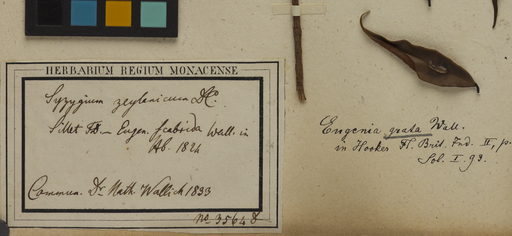 HERBARIUM REGIUM MONACENSE
Syzygium zeylanicum DC.
Sillet — Eugen. scabrida Wall. in
Hb. 1824
Commun. Dr Nath. Wallich 1833
no 3564
Eugenia grata Wall.
in Hooker Fl. Brit. Ind. II, p.
I. 93.